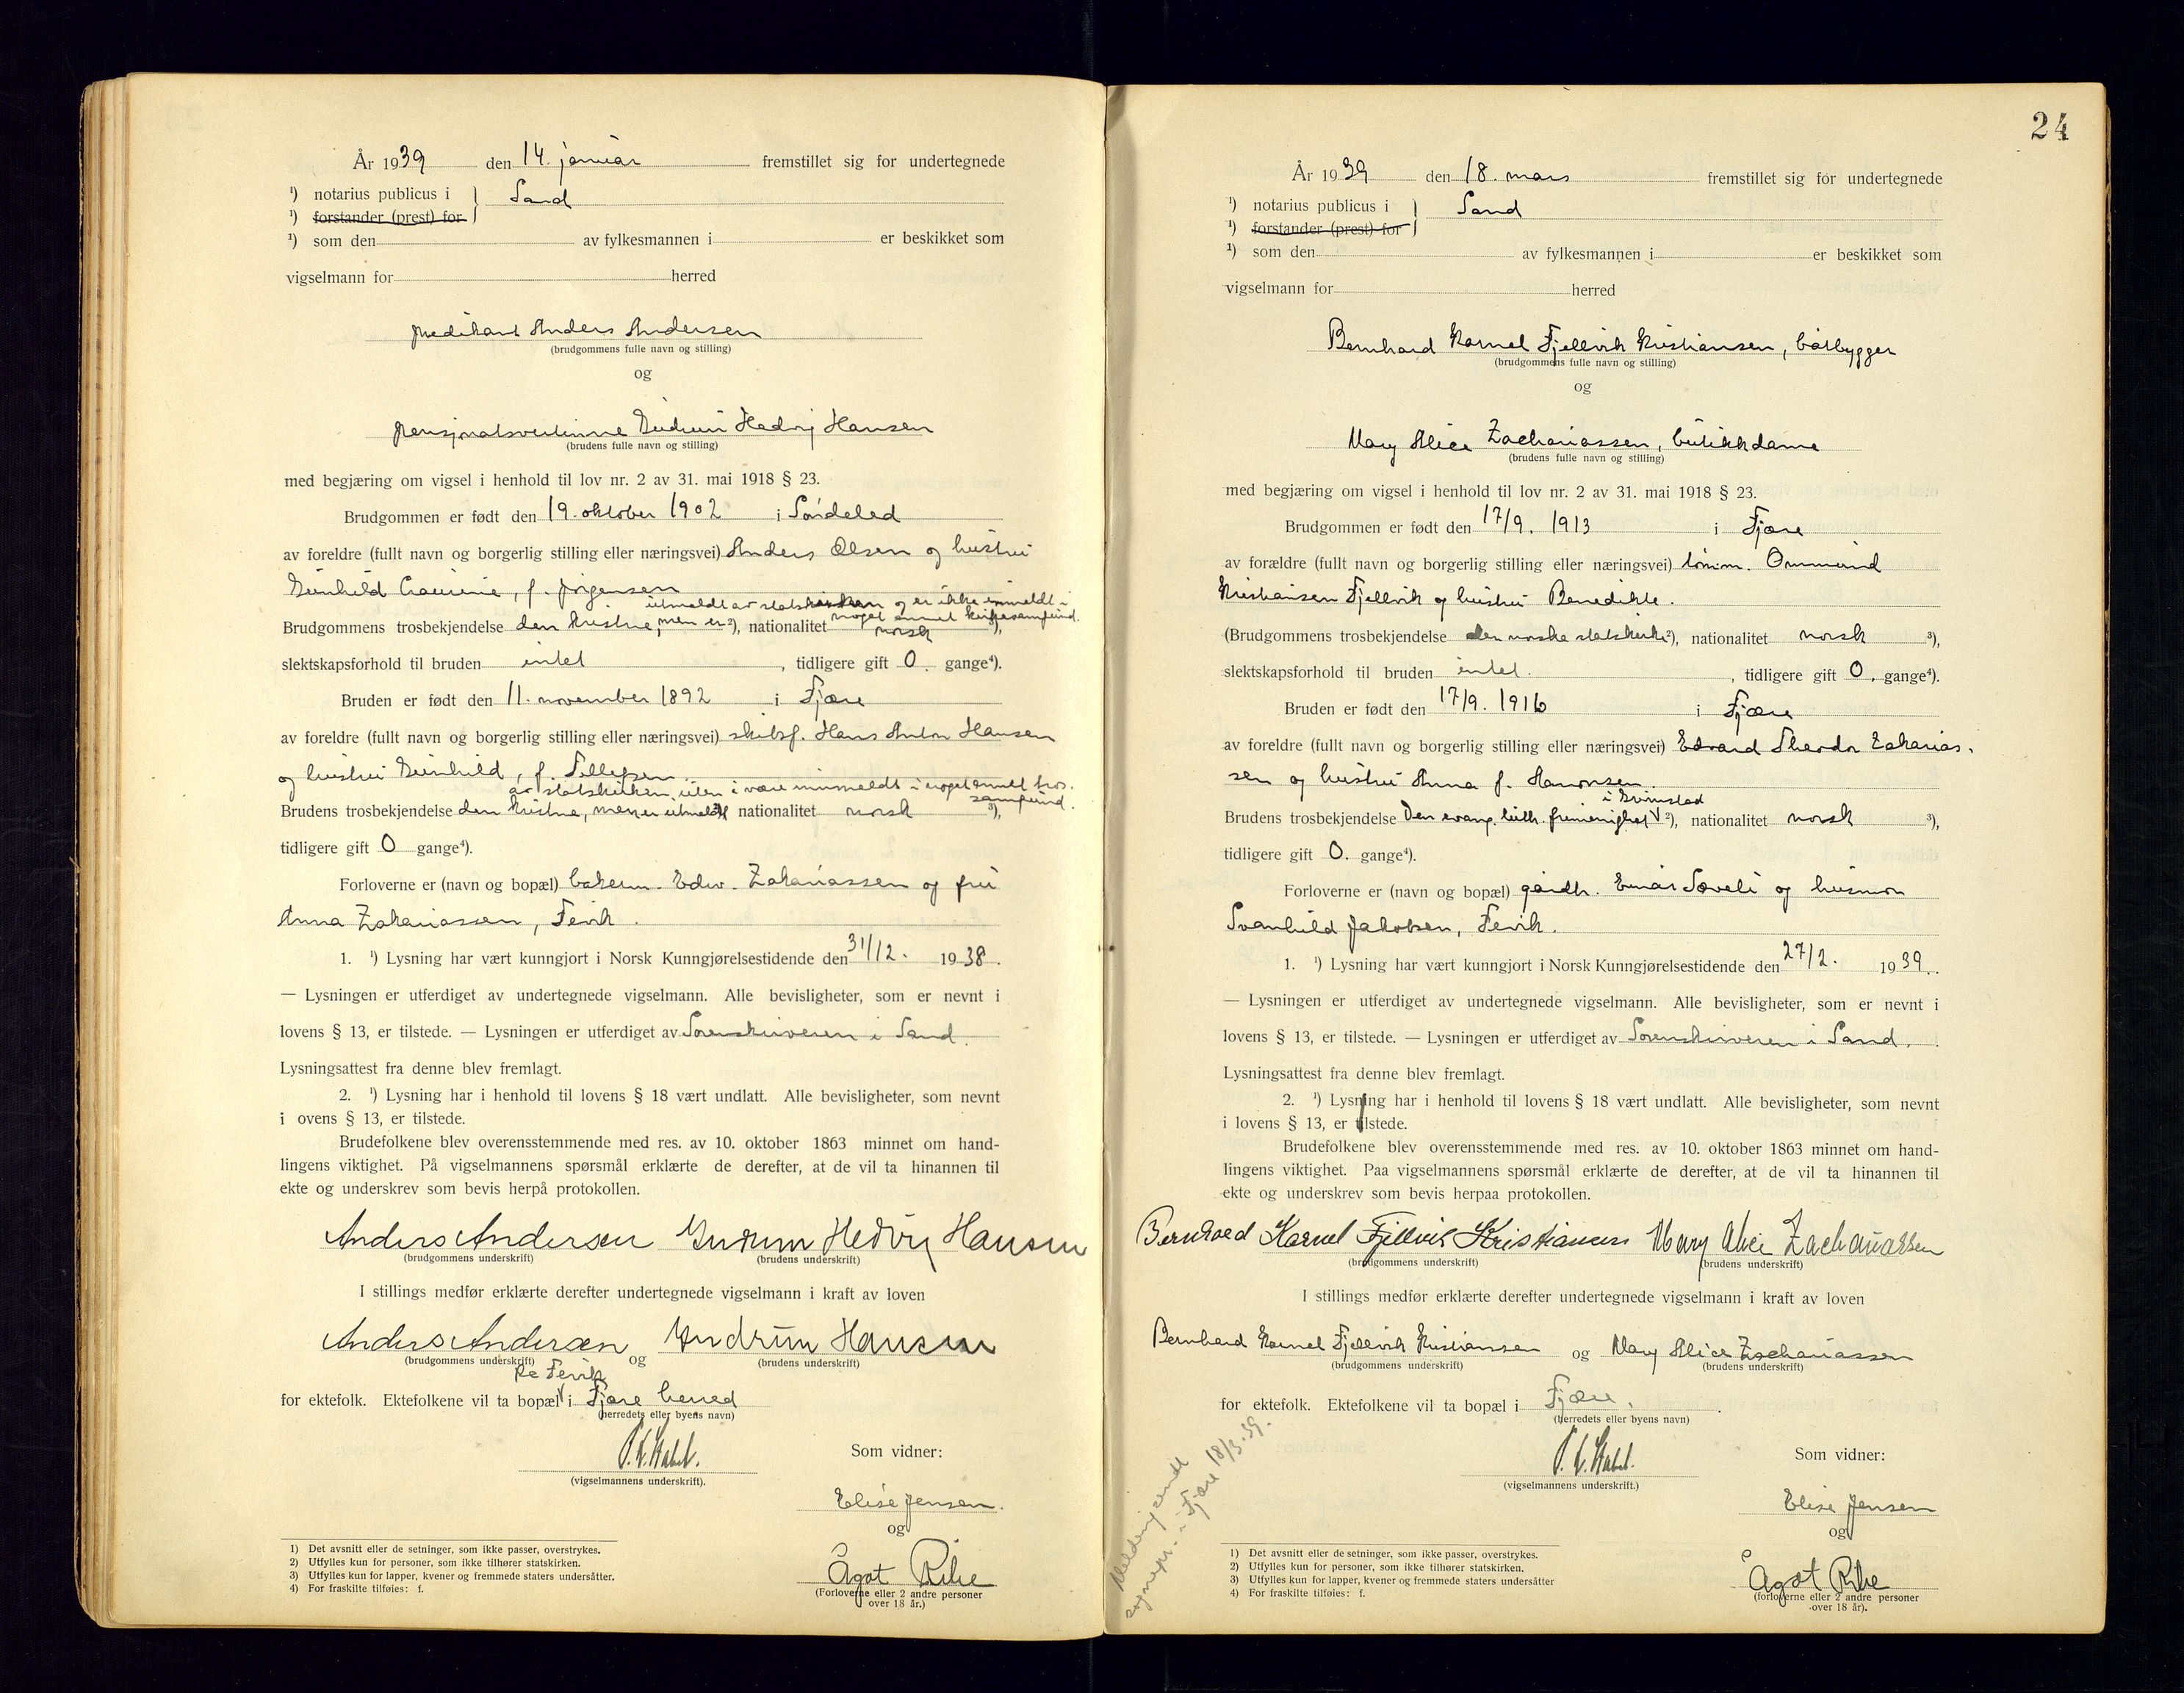 År 1939 den 14. januar fremstillet sig for undertegnede
¹) notarius publicus i } Sand
¹) forstander (prest) for
¹) som den av fylkesmannen i er beskikket som
vigselmann for herred
predikant Anders Andersen
(brudgommens fulle navn og stilling)
og
pensjonatsvertinne Gudrun Hedvig Hansen
(brudens fulle navn og stilling)
med begjæring om vigsel i henhold til lov nr. 2 av 31. mai 1918 § 23.
Brudgommen er født den 19. oktober 1902 i Søndeled
av foreldre (fullt navn og borgerlig stilling eller næringsvei) Anders Olsen og hustru
Gunhild Laurine, f. Jørgensen
utmeldt av statskirken og er ikke innmeldt i
noget annet kirkesamfund.
Brudgommens trosbekjendelse den kristne, men er ²), nationalitet norsk ³),
slektskapsforhold til bruden intet, tidligere gift 0. gange⁴).
Bruden er født den 11. november 1892 i Fjære
av foreldre (fullt navn og borgerlig stilling eller næringsvei) skibsf. Hans Anton Hansen
og hustru Gunhild, f. Tellefsen
av statskirken uten å være innmeldt i noget annet tros-
samfund.
Brudens trosbekjendelse den kristne, men er utmeldt nationalitet norsk ³),
tidligere gift 0 gange⁴).
Forloverne er (navn og bopæl) bakerm. Edw. Zakariassen og fru
Anna Zakariassen, Fevik.
1. ¹) Lysning har vært kunngjort i Norsk Kunngjørelsestidende den 31/12. 1938.
— Lysningen er utferdiget av undertegnede vigselmann. Alle bevisligheter, som er nevnt i
lovens § 13, er tilstede. — Lysningen er utferdiget av Sorenskriveren i Sand.
Lysningsattest fra denne blev fremlagt.
2. ¹) Lysning har i henhold til lovens § 18 vært undlatt. Alle bevisligheter, som nevnt
i ovens § 13, er tilstede.
Brudefolkene blev overensstemmende med res. av 10. oktober 1863 minnet om hand-
lingens viktighet. På vigselmannens spørsmål erklærte de derefter, at de vil ta hinannen til
ekte og underskrev som bevis herpå protokollen.
Anders Andersen Gudrun Hedvig Hansen
(brudgommens underskrift) (brudens underskrift)
I stillings medfør erklærte derefter undertegnede vigselmann i kraft av loven
Anders Andersen og Gudrun Hansen
(brudgommens underskrift) (brudens underskrift)
pr Fevik
for ektefolk. Ektefolkene vil ta bopæl i Fjære herred
(herredets eller byens navn)
(vigselmannens underskrift).
Som vidner:
Elise Jensen.
og
Ågot Rihe
(Forloverne eller 2 andre personer
over 18 år.)
1) Det avsnitt eller de setninger, som ikke passer, overstrykes.
2) Utfylles kun for personer, som ikke tilhører statskirken.
3) Utfylles kun for lapper, kvener og fremmede staters undersåtter.
4) For fraskilte tilføies: f.
24
År 1939 den 18. mars fremstillet sig for undertegnede
¹) notarius publicus i } Sand
¹) forstander (prest) for
¹) som den av fylkesmannen i er beskikket som
vigselmann for herred
Bernhard Kornel Fjellvik Kristiansen, båtbygger
(brudgommens fulle navn og stilling)
og
Mary Alice Zachariassen, butikkdame
(brudens fulle navn og stilling)
med begjæring om vigsel i henhold til lov nr. 2 av 31. mai 1918 § 23.
Brudgommen er født den 17/9. 1913 i Fjære
av forældre (fullt navn og borgerlig stilling eller næringsvei) tømm. Ommund
Kristiansen Fjellvik og hustru Benedikte.
(Brudgommens trosbekjendelse den norske statskirke ²), nationalitet norsk ³),
slektskapsforhold til bruden intet., tidligere gift 0. gange⁴).
Bruden er født den 17/9. 1916 i Fjære
av foreldre (fullt navn og borgerlig stilling eller næringsvei) Edvard Theodor Zakarias-
sen og hustru Anna f. Haronsen.
i Grimstad
Brudens trosbekjendelse Den evang. luth. frimenighet ²), nationalitet norsk ³),
tidligere gift 0. gange⁴).
Forloverne er (navn og bopæl) gårdbr. Einar Sæveli og husmor
Svanhild Jakobsen, Fevik.
1. ¹) Lysning har vært kunngjort i Norsk Kunngjørelsestidende den 27/2. 1939.
— Lysningen er utferdiget av undertegnede vigselmann. Alle bevisligheter, som er nevnt i
lovens § 13, er tilstede. — Lysningen er utferdiget av Sorenskriveren i Sand.
Lysningsattest fra denne blev fremlagt.
2. ¹) Lysning har i henhold til lovens § 18 vært undlatt. Alle bevisligheter, som nevnt
i lovens § 13, er tilstede.
Brudefolkene blev overensstemmende med res. av 10. oktober 1863 minnet om hand-
lingens viktighet. Paa vigselmannens spørsmål erklærte de derefter, at de vil ta hinannen til
ekte og underskrev som bevis herpaa protokollen.
Bernhard Kornel Fjellvik Kristiansen Mary Alice Zachariassen
(brudgommens underskrift) (brudens underskrift)
I stillings medfør erklærte derefter undertegnede vigselmann i kraft av loven
Bernhard Kornel Fjellvik Kristiansen og Mary Alice Zachariassen
(brudgommens underskrift) (brudens underskrift)
for ektefolk. Ektefolkene vil ta bopæl i Fjære.
(herredets eller byens navn)
(vigselmannens underskrift.)
Som vidner:
Elise Jensen
og
Ågot Rihe
(forloverne eller 2 andre personer
over 18 år).
Melding sendt
sognepr. i Fjære 18/3.39.
1) Det avsnitt eller de setninger, som ikke passer, overstrykes.
2) Utfylles kun for personer, som ikke tilhører statskirken.
3) Utfylles kun for lapper, kvener og fremmede staters undersåtter
4) For fraskilte tilføies: f.